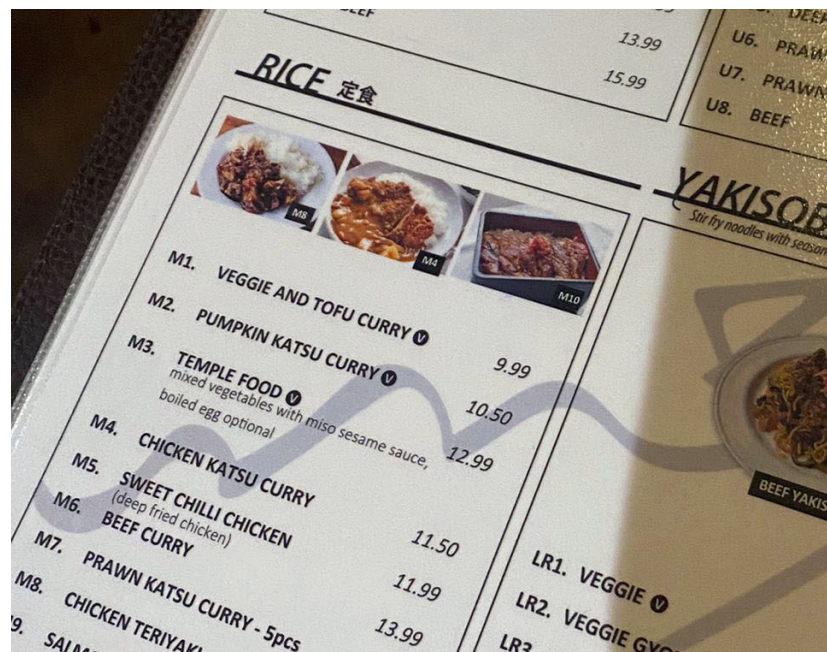 BEEF
13.99
15.99
DEEP
U6. PRAWN
U7. PRAWN
U8. BEEF
RICE 定食
M8
M4
M10
M1. VEGGIE AND TOFU CURRY V 9.99
M2. PUMPKIN KATSU CURRY V 10.50
M3. TEMPLE FOOD V 12.99
mixed vegetables with miso sesame sauce,
boiled egg optional
M4. CHICKEN KATSU CURRY 11.50
M5. SWEET CHILLI CHICKEN 11.99
(deep fried chicken)
M6. BEEF CURRY 13.99
M7. PRAWN KATSU CURRY - 5pcs
M8. CHICKEN TERIYAKI
YAKISOB
Stir fry noodles with season
BEEF YAKIS
LR1. VEGGIE V
LR2. VEGGIE GYO
LR3.